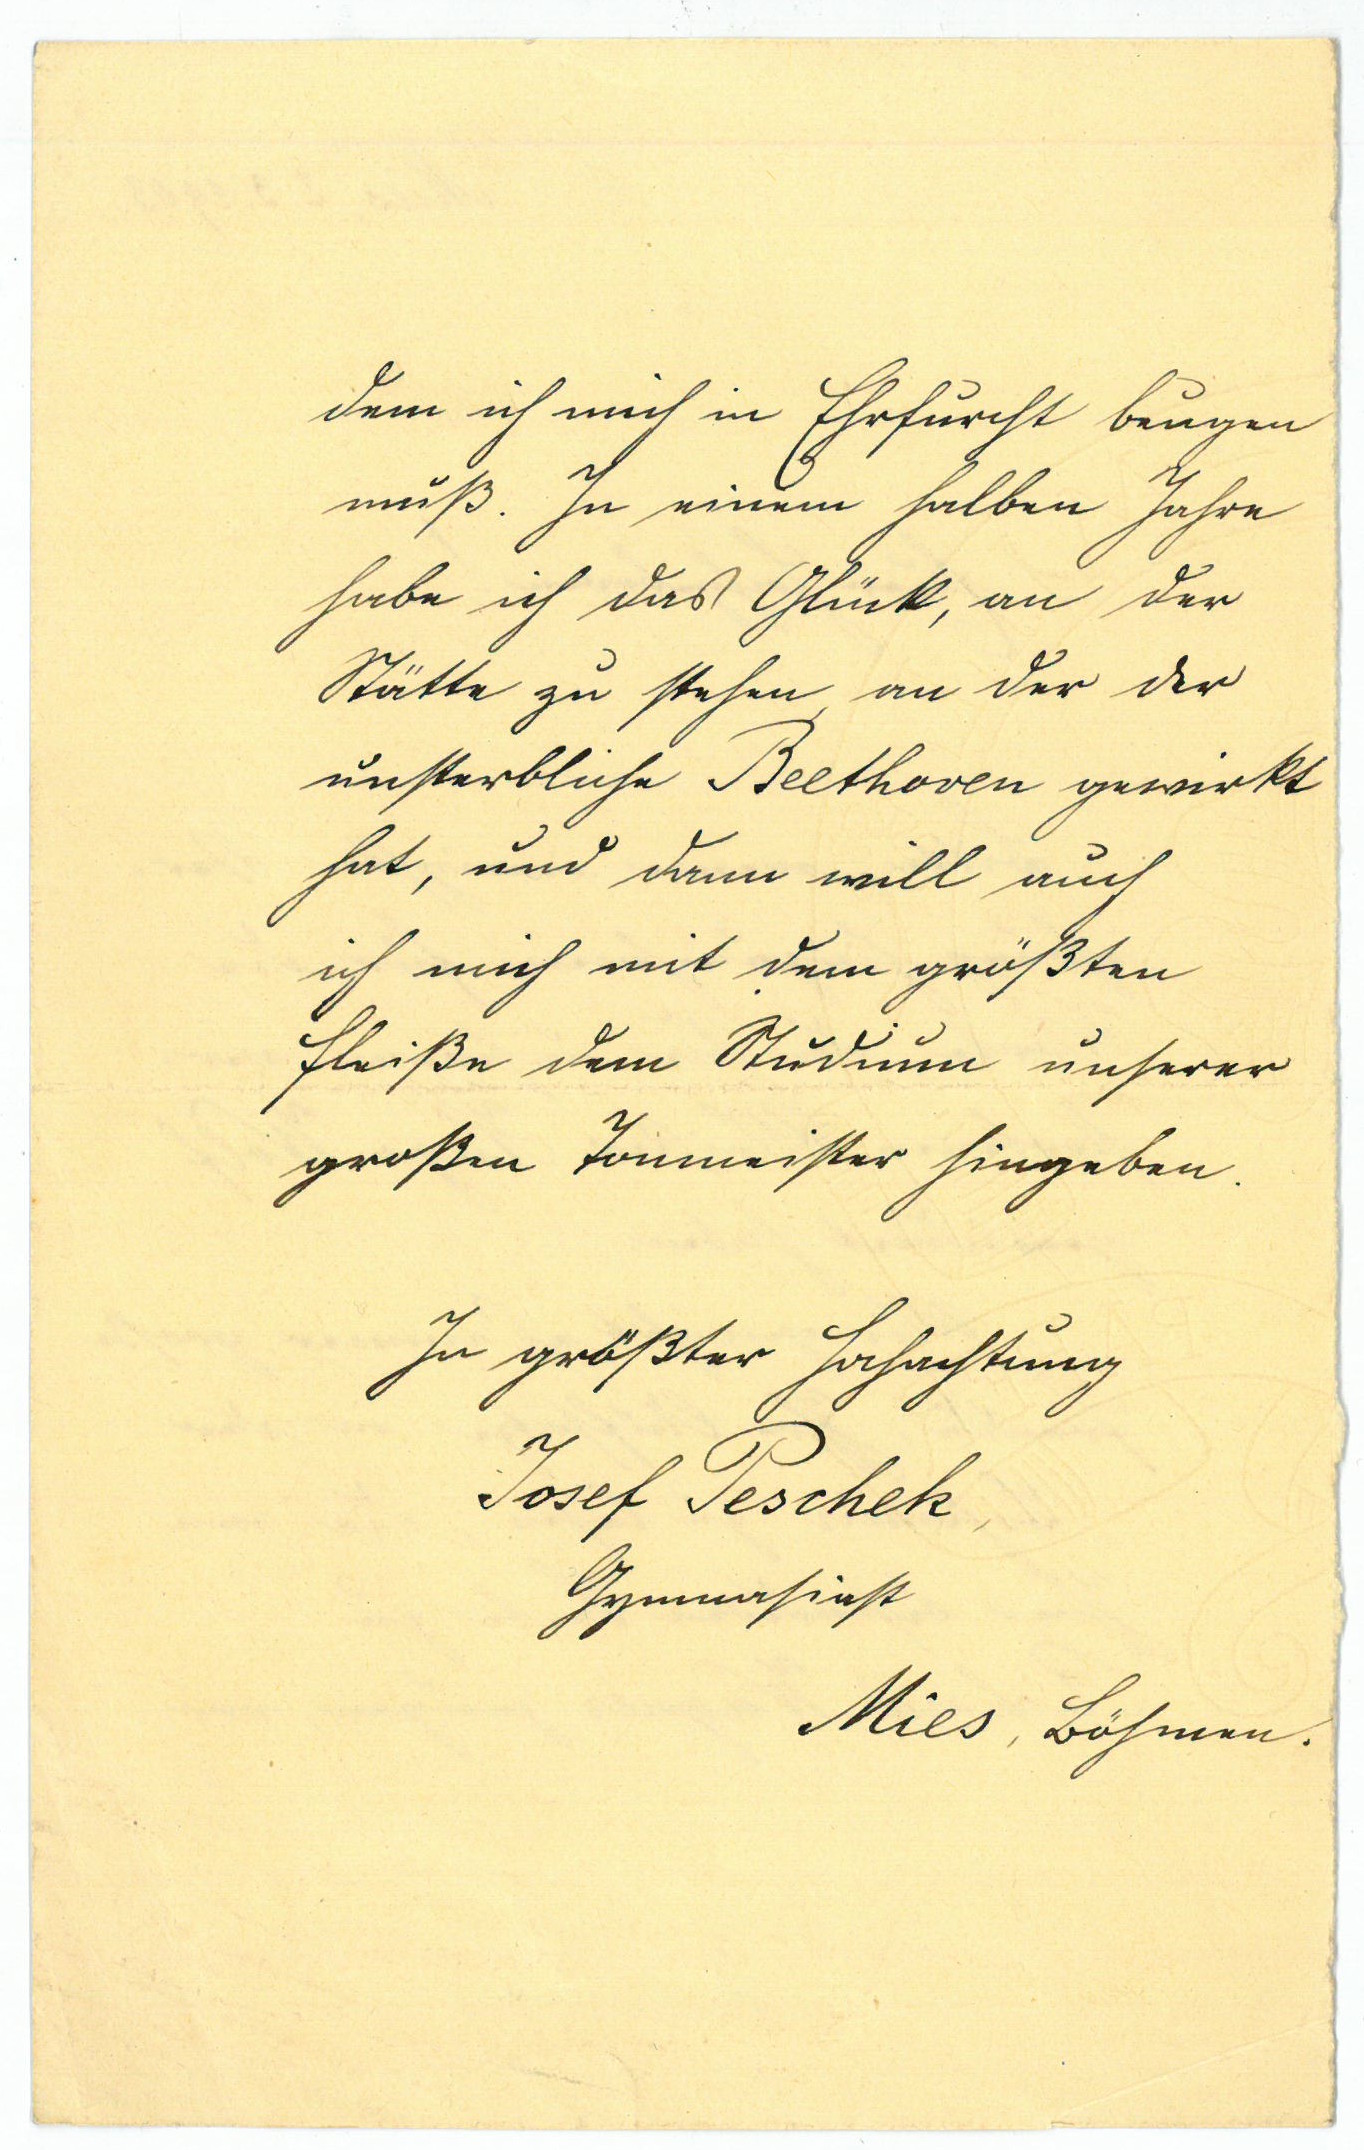 dem ich mich in Ehrfurcht beugen
muß. In einem halben Jahre
habe ich das Glück, an der
Stätte zu stehen, an der der
unsterbliche Beethoven gewirkt
hat, und dann will auch
ich mich mit dem größten
Fleiße dem Studium unserer
großen Tonmeister hingeben.
In größter Hochachtung
Josef Peschek,
Gymnasiast
Mies, Böhmen.